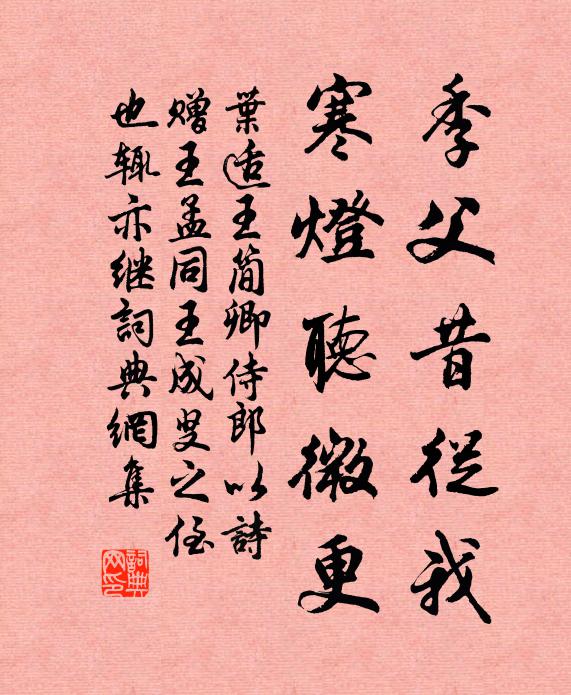 季父昔從我
寒燈聽微更
葉適王簡卿侍郎以詩
贈王孟同王成叟之侄
也輒亦继詞典網集
詞典
网印